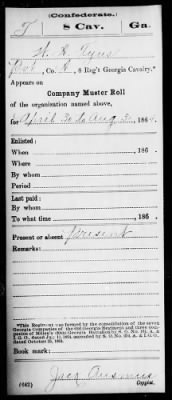 (Confederate.)
T 8 Cav. Ga.
W. H. Tyus
Pvt, Co. H, 8 Reg't Georgia Cavalry.*
Appears on
Company Muster Roll
of the organization named above,
for April 30 to Aug 31, 1864.
Enlisted:
When , 186 .
Where
By whom
Period
Last paid:
By whom
To what time , 186 .
Present or absent Present
Remarks:
*This Regiment was formed by the consolidation of the seven
Georgia Companies of the 62d Georgia Regiment and three com-
panies of
Book mark:
(642) Copyist.